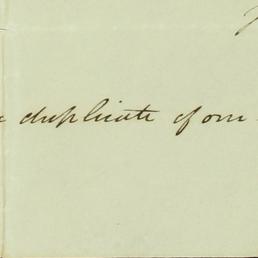 duplicate of our